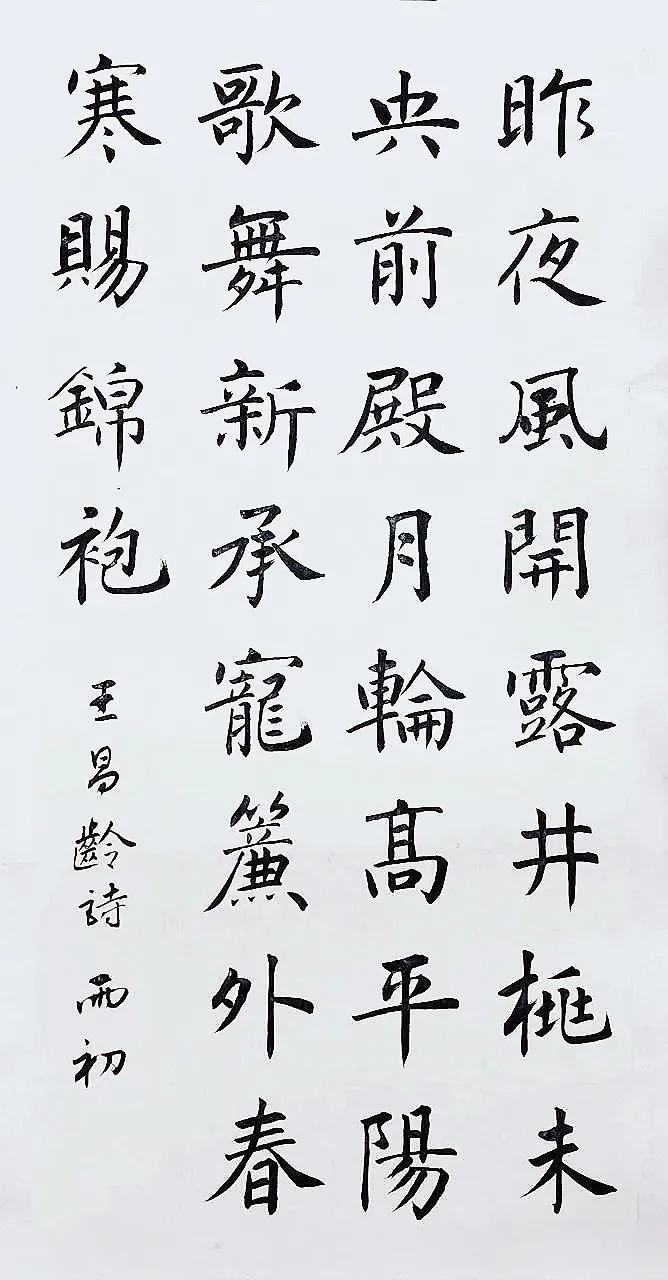 昨夜風開露井桃未
央前殿月輪高平陽
歌舞新承寵簾外春
寒賜錦袍
王昌齡詩 雨初